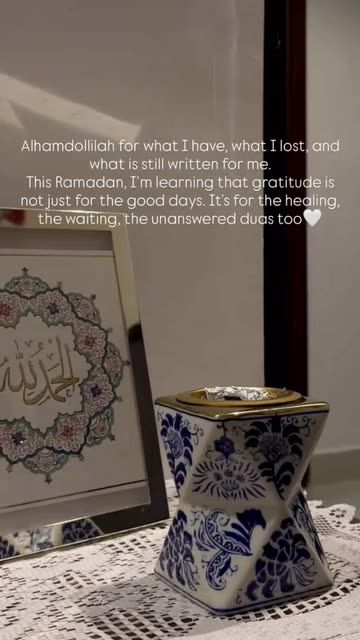 Alhamdollilah for what I have, what I lost, and
what is still written for me.
This Ramadan, I'm learning that gratitude is
not just for the good days. It's for the healing,
the waiting, the unanswered duas too🤍
الحمد لله